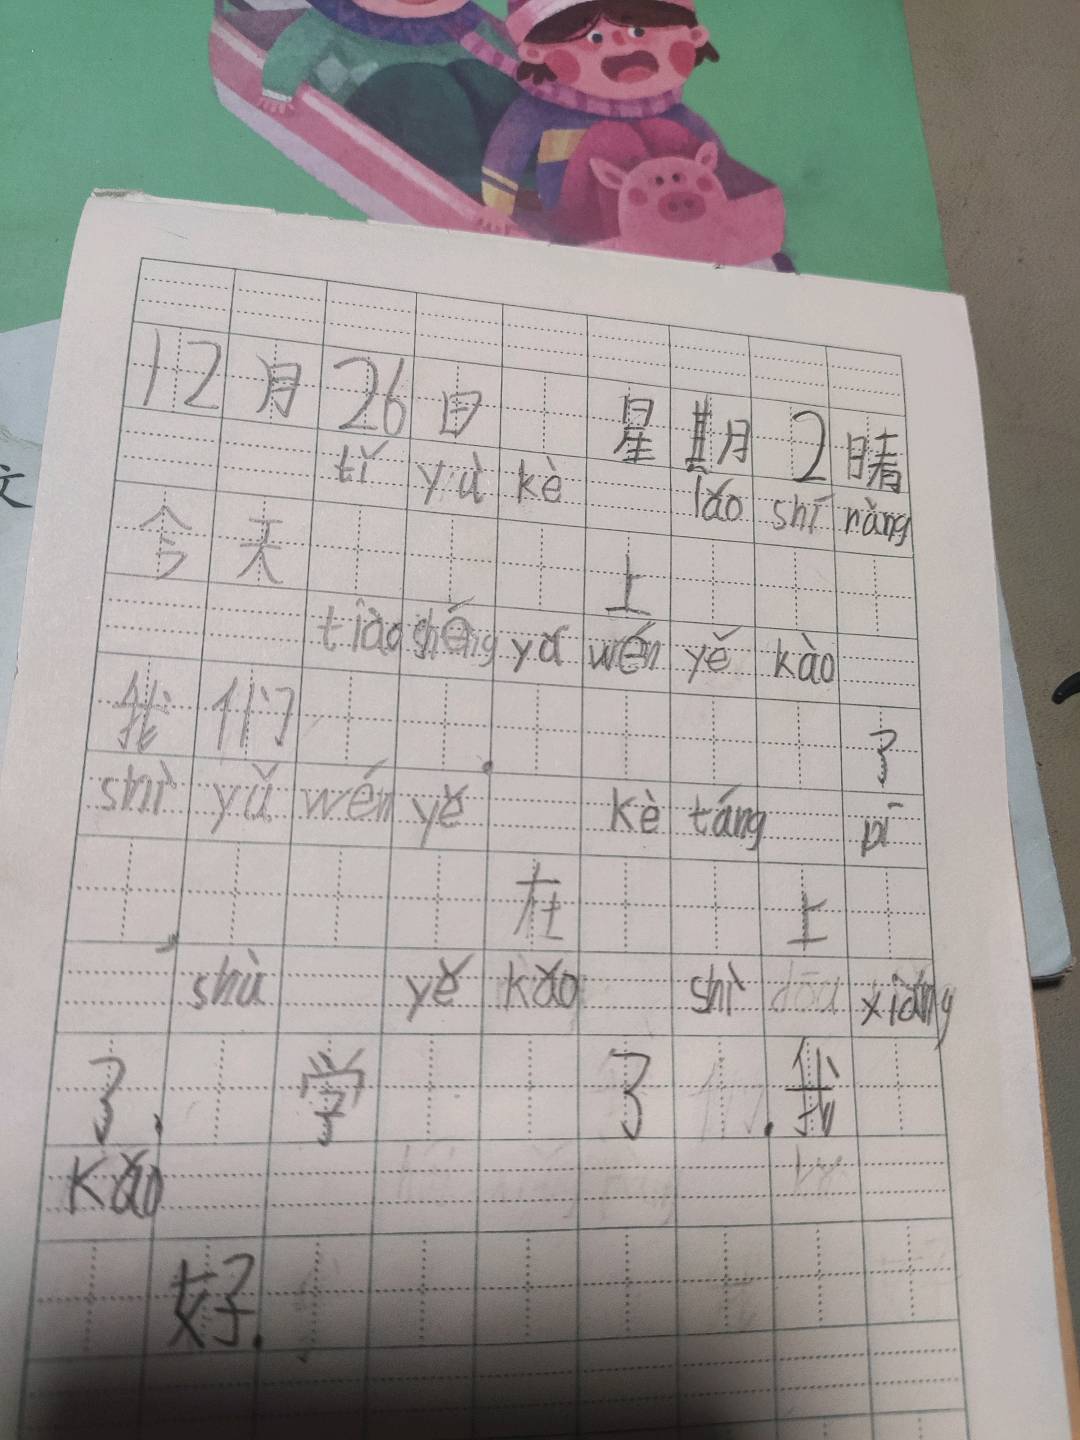 12月26日 星期2晴
tǐ yù kè lǎo shī ràng
今天 上
tiào shéng yǔ wén yě kǎo
我们 了
shì yǔ wén yě kè táng pī
在 上
shù yě kǎo shì xiǎng
了 . 学 了 . 我
kǎo
好.
文